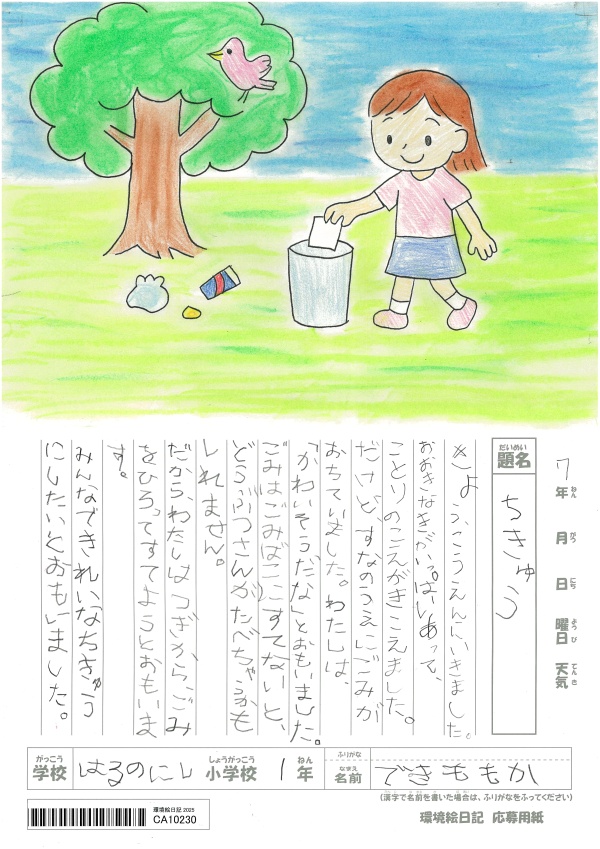 7年 月 日 曜日 天気
ねん がつ にち ようび てんき
だいめい
題名 ちきゅう
きょう、こうえんにいきました。
おおきなきがいっぱいあって、
ことりのこえがきこえました。
だけど、すなのうえにごみが
おちていました。わたしは、
「かわいそうだな」とおもいました。
ごみはごみばこにすてないと、
どうぶつさんがたべちゃうかも
しれません。
だから、わたしはつぎから、ごみ
をひろってすてようとおもいま
す。
みんなできれいなちきゅう
にしたいとおもいました。
がっこう しょうがっこう ねん ふりがな
学校 はるのにし 小学校 1年 なまえ 名前 できももか
(漢字で名前を書いた場合は、ふりがなをふってください)
環境絵日記 応募用紙
環境絵日記 2025
CA10230